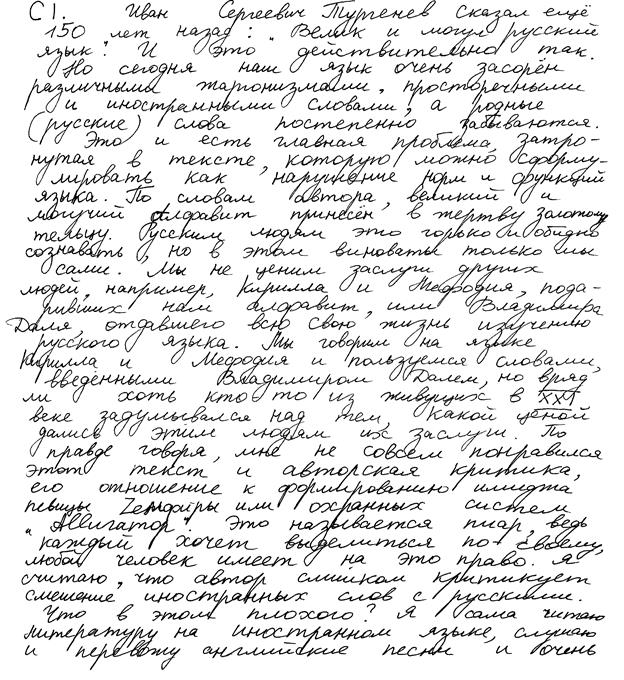 С1. Иван Сергеевич Тургенев сказал ещё
150 лет назад: "Велик и могуч русский
язык". И это действительно так.
Но сегодня наш язык очень засорён
различными жаргонизмами, просторечными
и иностранными словами, а родные
(русские) слова постепенно забываются.
Это и есть главная проблема, затро-
нутая в тексте, которую можно сформу-
лировать как нарушение норм и функций
языка. По словам автора, великий и
могучий алфавит принесён в жертву золотому
тельцу. Русским людям это горько и обидно
сознавать, но в этом виноваты только мы
сами. Мы не ценим заслуги других
людей, например, Кирилла и Мефодия, пода-
ривших нам алфавит, или Владимира
Даля, отдавшего всю свою жизнь изучению
русского языка. Мы говорим на языке
Кирилла и Мефодия и пользуемся словами,
введёнными Владимиром Далем, но вряд
ли хоть кто то из живущих в XXI
веке задумывался над тем, какой ценой
дались этим людям их заслуги. По
правде говоря, мне не совсем понравился
этот текст и авторская критика,
его отношение к формированию имиджа
певицы Zемфиры или охранных систем
"Аллигатор". Это называется пиар, ведь
каждый хочет выделиться по-своему,
любой человек имеет на это право. Я
считаю, что автор слишком критикует
смешение иностранных слов с русскими.
Что в этом плохого? Я сама читаю
литературу на иностранном языке, слушаю
и перевожу английские песни и очень